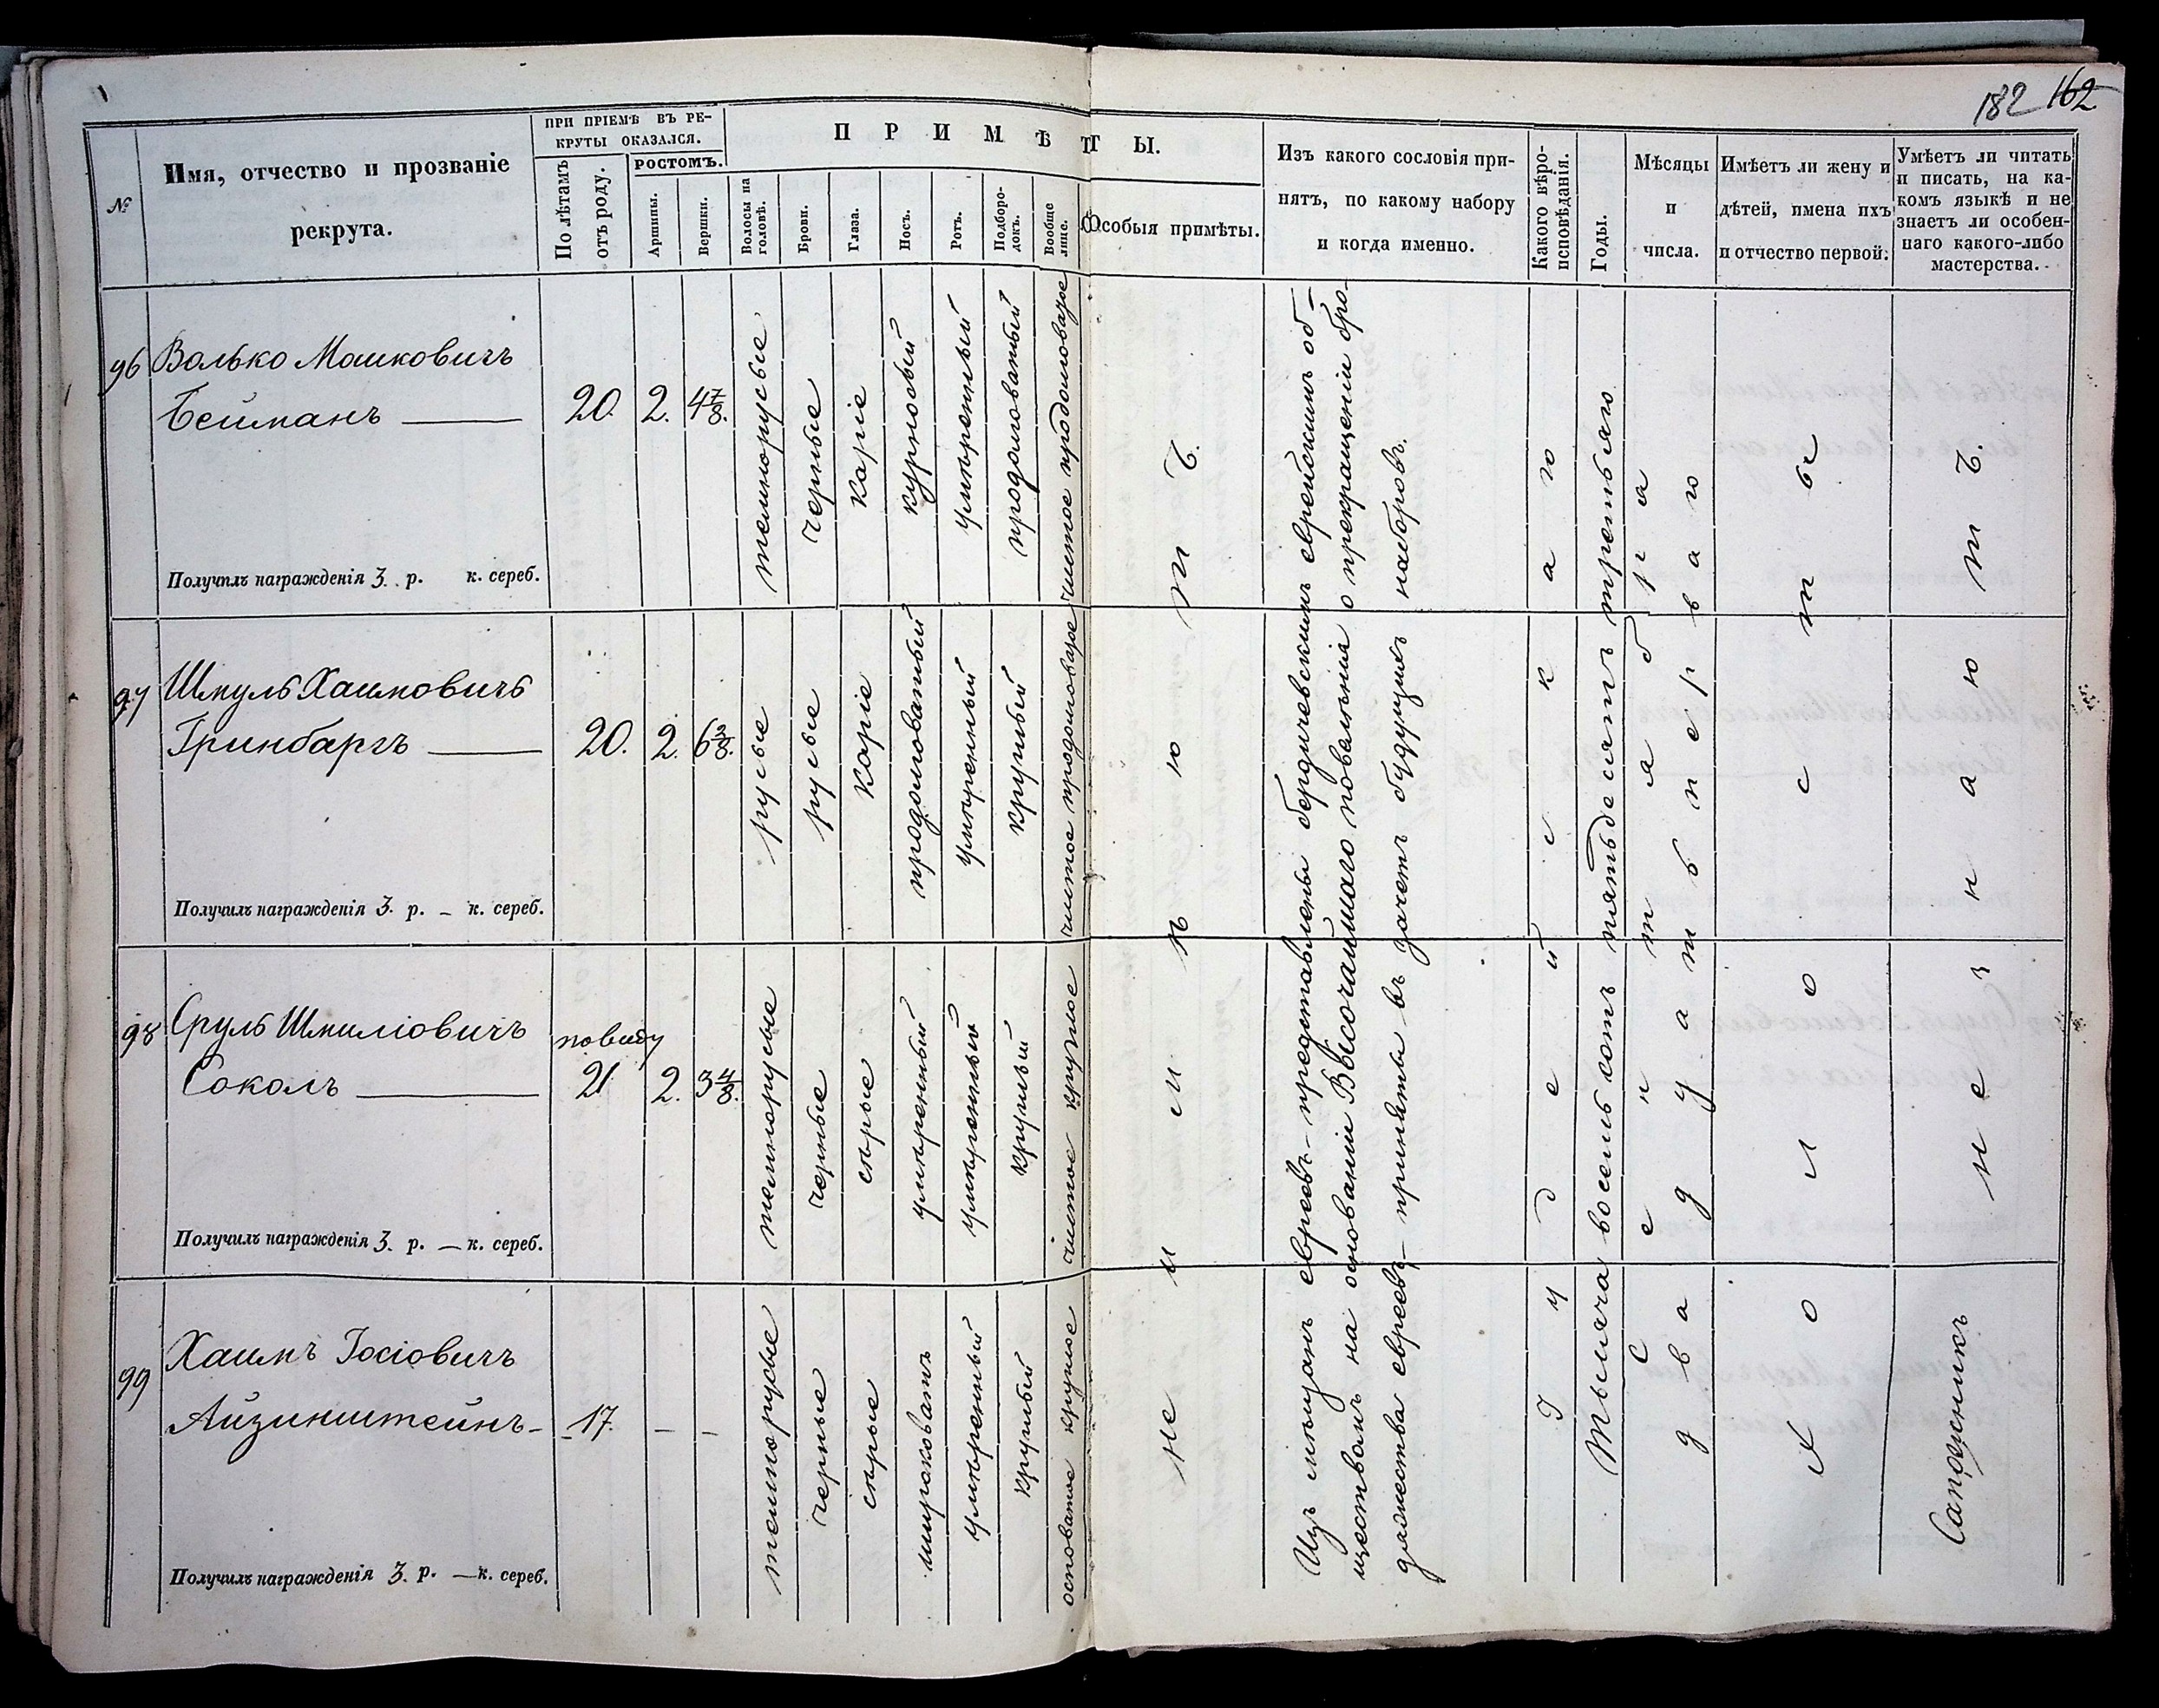 182 162
№
Имя, отчество и прозваніе
рекрута.
ПРИ ПРІЕМѢ ВЪ РЕ-
КРУТЫ ОКАЗАЛСЯ.
По лѣтамъ
отъ роду.
РОСТОМЪ.
Аршины.
Вершки.
ПРИМѢТЫ.
Волосы на
головѣ.
Брови.
Глаза.
Носъ.
Ротъ.
Подборо-
докъ.
Вообще
лице.
Особыя примѣты.
Изъ какого сословія при-
нятъ, по какому набору
и когда именно.
Какого вѣро-
исповѣданія.
Годы.
Мѣсяцы
и
числа.
Имѣетъ ли жену и
дѣтей, имена ихъ
и отчество первой.
Умѣетъ ли читать
и писать, на ка-
комъ языкѣ и не
знаетъ ли особен-
наго какого-либо
мастерства.
96 Волько Мошковичъ
Бейманъ
20. 2. 4 7/8.
темнорусые
черные
каріе
курносый
умѣренный
продолговатый
чистое продолговатое
Получилъ награжденія 3. р. к. сереб.
97 Шмуль Хаимовичъ
Гринбаргъ
20. 2. 6 3/8.
русые
русые
каріе
продолговатый
умѣренный
круглый
чистое продолговатое
Получилъ награжденія 3. р. – к. сереб.
98 Сруль Шмиліовичъ
Соколъ
повиду
21 2. 3 4/8.
темнорусые
черные
сѣрые
умѣренный
умѣренный
круглый
чистое круглое
Получилъ награжденія 3. р. — к. сереб.
99 Хаимъ Іосіовичъ
Айзинштейнъ
17. – –
темнорусые
черные
сѣрые
широковатъ
умѣренный
круглый
осповатое круглое
Получилъ награжденія 3. р. — к. сереб.
не имѣютъ.
Изъ мѣщанъ евреевъ – представлены бердичевскимъ еврейскимъ об-
ществомъ на основаніи Высочайшаго повелѣнія о прекращеніи бро-
дяжества евреевъ – приняты въ зачетъ будущихъ
наборовъ.
Іудейскаго
Тысяча восемь сотъ пятьдесятъ третьяго
Сентября
двадцать перваго
Холосты
не знаютъ.
Сапожникъ